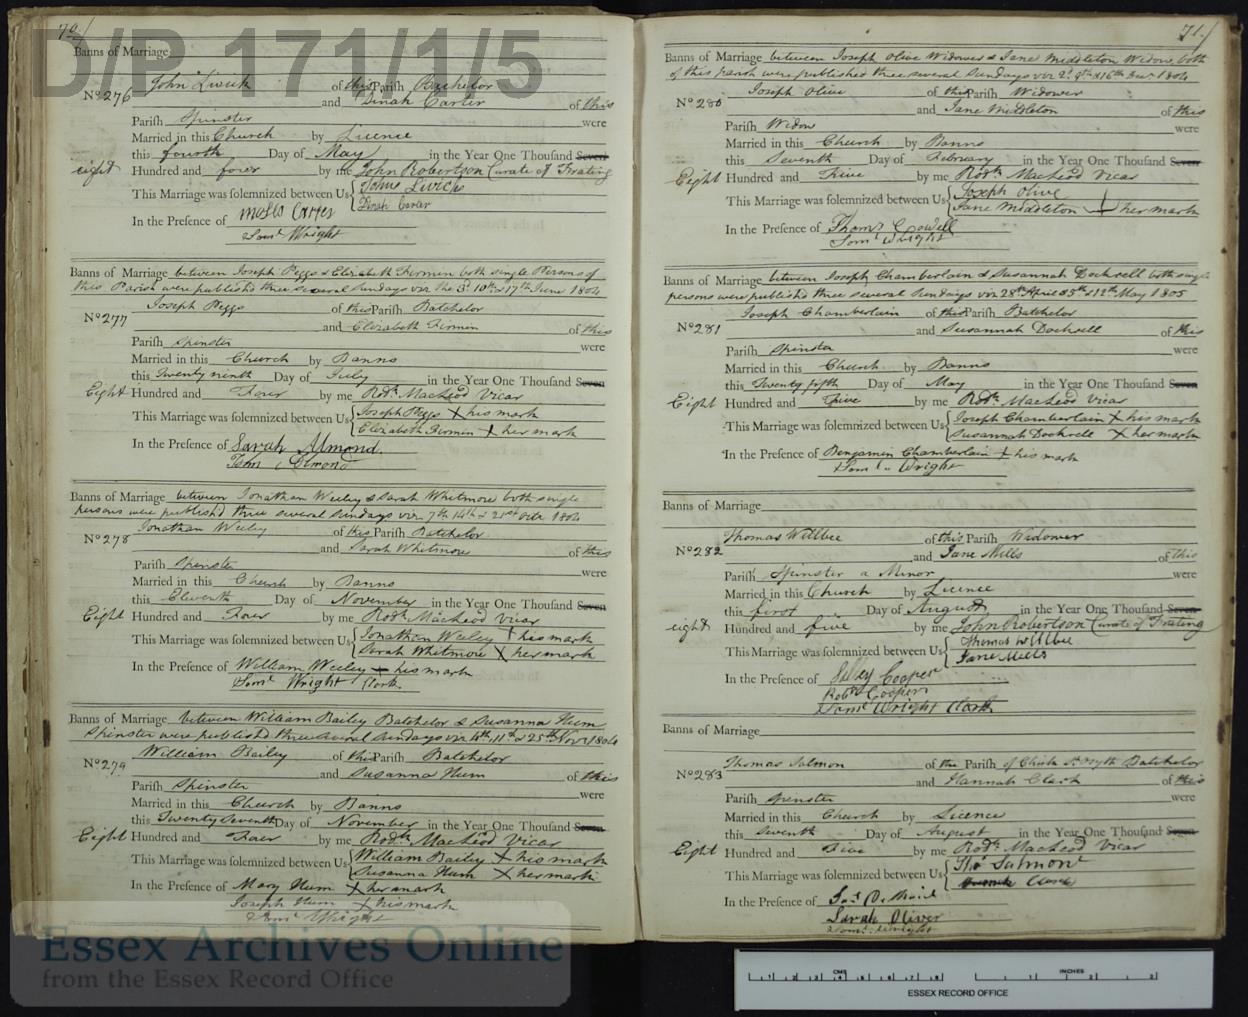 D/P 171/1/5
70
Banns of Marriage
John Livick of this Parish Bachelor
No 276 and Dinah Carter of this
Parish Spinster were
Married in this Church by Licence
this fourth Day of May in the Year One Thousand Seven
eight Hundred and four by me John Robertson Curate of Frating
This Marriage was solemnized between Us John Livick
Dinah Carter
In the Presence of Moses Carter
Saml Wright
Banns of Marriage between Joseph Peggs & Elizabeth Firmin both single Persons of
this Parish were published three several Sundays viz the 3d 10th & 17th June 1804
Joseph Peggs of this Parish Batchelor
No 277 and Elizabeth Firmin of this
Parish Spinster were
Married in this Church by Banns
this Twenty ninth Day of July in the Year One Thousand Seven
Eight Hundred and Four by me Rodk Macleod Vicar
This Marriage was solemnized between Us Joseph Peggs X his mark
Elizabeth Firmin X her mark
In the Presence of Sarah Almond
Banns of Marriage between Jonathan Weeley & Sarah Whitmore both single
persons were published three several Sundays viz 7th 14th & 21st Octr 1804
Jonathan Weeley of this Parish Batchelor
No 278 and Sarah Whitmore of this
Parish Spinster were
Married in this Church by Banns
this Eleventh Day of November in the Year One Thousand Seven
Eight Hundred and Four by me Rodk Macleod Vicar
This Marriage was solemnized between Us Jonathan Weeley X his mark
Sarah Whitmore X her mark
In the Presence of William Weeley X his mark
Saml Wright Clark
Banns of Marriage between William Bailey Batchelor & Susanna Hum
Spinster were published three several Sundays viz 4th, 11th & 25th Novr 1804
William Bailey of this Parish Batchelor
No 279 and Susanna Hum of this
Parish Spinster were
Married in this Church by Banns
this Twenty Seventh Day of November in the Year One Thousand Seven
Eight Hundred and Four by me Rodk Macleod Vicar
This Marriage was solemnized between Us William Bailey X his mark
Susanna Hum X her mark
In the Presence of Mary Hum X her mark
Joseph Hum X his mark
Saml Wright
71
Banns of Marriage between Joseph Olive Widower & Jane Middleton Widow, both
of this parish were published three several Sundays viz 2d 9th & 16th Decr 1804
Joseph Olive of this Parish Widower
No 280 and Jane Middleton of this
Parish Widow were
Married in this Church by Banns
this Seventh Day of February in the Year One Thousand Seven
Eight Hundred and Five by me Rodk Macleod Vicar
This Marriage was solemnized between Us Joseph Olive
Jane Middleton X her mark
In the Presence of Thoms Crowell
Saml Wright
Banns of Marriage between Joseph Chamberlain & Susannah Dockrell both single
persons were published three several Sundays viz 28th April 5th & 12th May 1805
Joseph Chamberlain of this Parish Batchelor
No 281 and Susannah Dockrell of this
Parish Spinster were
Married in this Church by Banns
this Twenty fifth Day of May in the Year One Thousand Seven
Eight Hundred and Five by me Rodk Macleod Vicar
This Marriage was solemnized between Us Joseph Chamberlain X his mark
Susannah Dockrell X her mark
In the Presence of Benjamin Chamberlain X his mark
Saml Wright
Banns of Marriage
Thomas Willbee of this Parish Widower
No 282 and Jane Mills of this
Parish Spinster a Minor were
Married in this Church by Licence
this first Day of August in the Year One Thousand Seven
eight Hundred and five by me John Robertson Curate of Frating
This Marriage was solemnized between Us Thomas Willbee
Jane Mills
In the Presence of Cooper
Robt Cooper
Saml Wright Clark
Banns of Marriage
Thomas Salmon of the Parish of Chich St Osyth Batchelor
No 283 and Hannah Clark of this
Parish Spinster were
Married in this Church by Licence
this Seventh Day of August in the Year One Thousand Seven
Eight Hundred and Five by me Rodk Macleod Vicar
This Marriage was solemnized between Us Thos Salmon
Clark
In the Presence of
Sarah Oliver
Saml Wright
Essex Archives Online
from the Essex Record Office
CMS
1 2 3 4 5 6 7 8
INCHES
1 2
ESSEX RECORD OFFICE